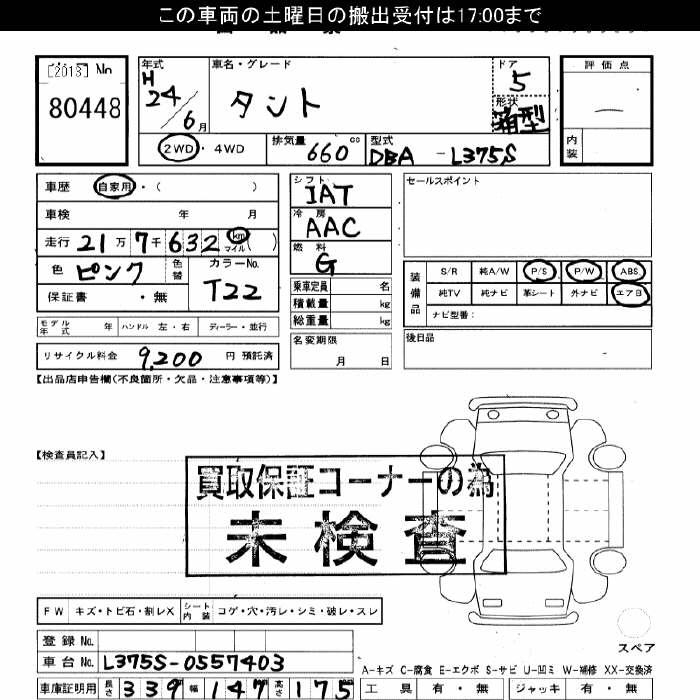 この車両の土曜日の搬出受付は17:00まで
[2013] No
80448
年式
H
24
6月
車名・グレード
タント
ドア
5
形状
箱型
評価点
内装
2WD ・ 4WD
排気量
660 cc
型式
DBA - L375S
車歴 自家用・( )
車検 年 月
走行 21万7千632 km マイル( )
色 ピンク 色替
カラーNo.
T22
保証書 ・無
モデル年式 年 ハンドル 左・右 ディーラー・並行
リサイクル料金 9,200 円 預託済
シフト
IAT
冷房
AAC
燃料
G
乗車定員 名
積載量 kg
総重量 kg
名変期限
月 日
セールスポイント
装備品
S/R 純A/W P/S P/W ABS
純TV 純ナビ 革シート 外ナビ エアB
ナビ型番:
後日品
【出品店申告欄(不良箇所・欠品・注意事項等)】
【検査員記入】
買取保証コーナーの為
未検査
FW キズ・トビ石・割レX シート内装 コゲ・穴・汚レ・シミ・破レ・スレ
登録 No.
車台 No. L375S-0557403
車庫証明用 長さ 339 幅 147 高さ 175
スペア
A-キズ C-腐食 E-エクボ S-サビ U-凹ミ W-補修 XX-交換済
工具 有・無 ジャッキ 有・無